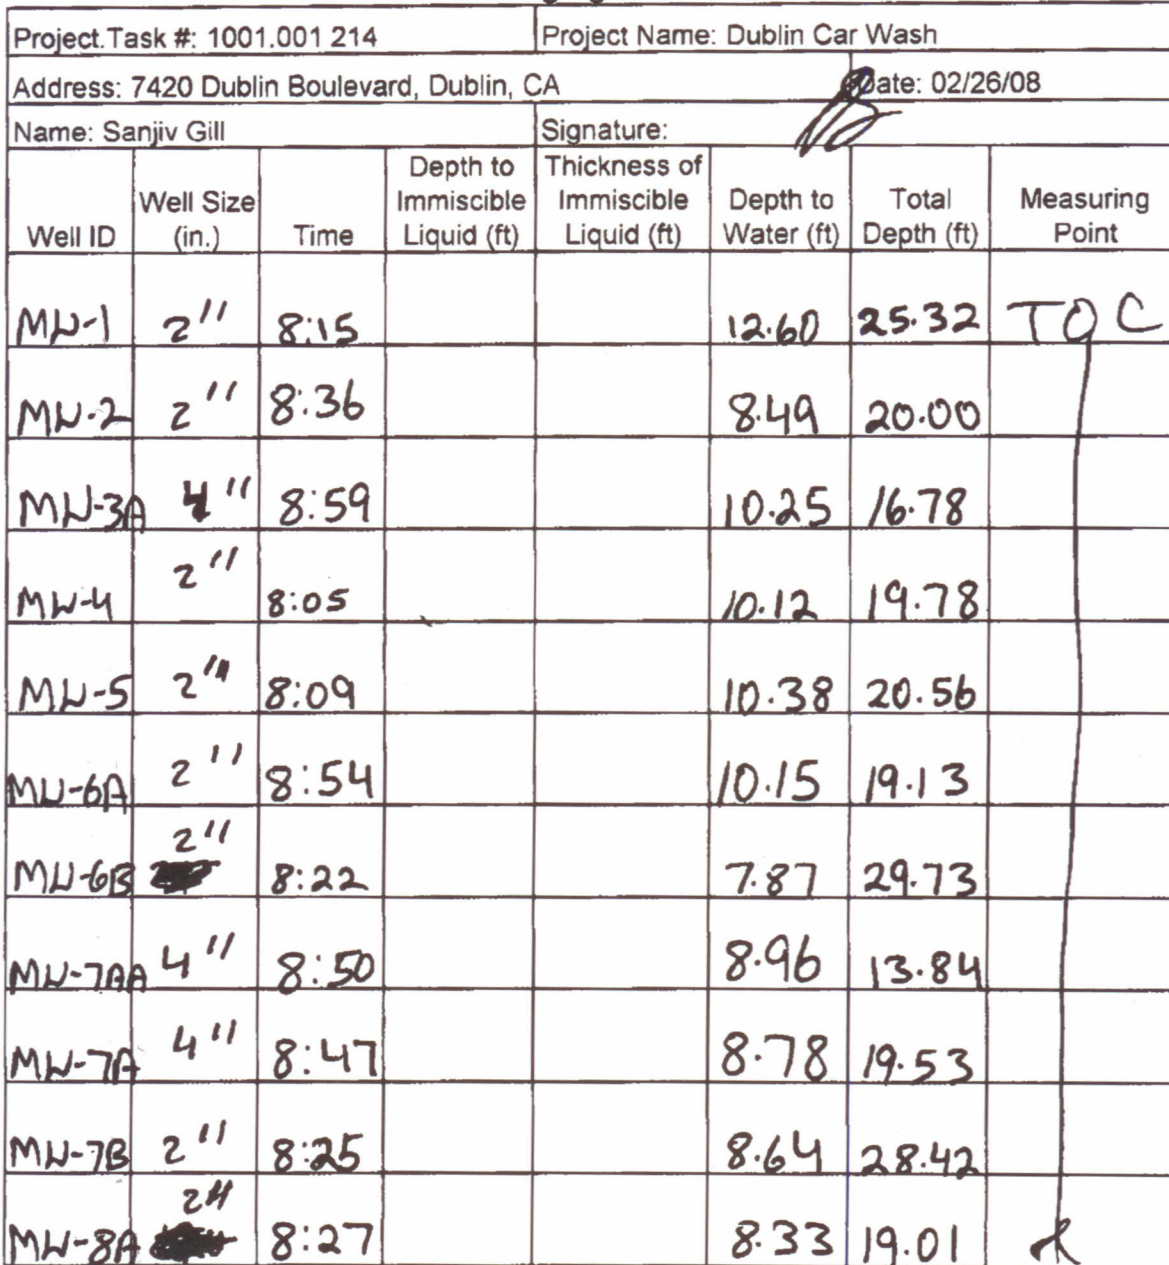 Project.Task #: 1001.001 214 Project Name: Dublin Car Wash
Address: 7420 Dublin Boulevard, Dublin, CA Date: 02/26/08
Name: Sanjiv Gill Signature:
Well ID Well Size (in.) Time Depth to Immiscible Liquid (ft) Thickness of Immiscible Liquid (ft) Depth to Water (ft) Total Depth (ft) Measuring Point
MW-1 2" 8:15 12.60 25.32 TOC
MW-2 2" 8:36 8.49 20.00
MW-3A 4" 8:59 10.25 16.78
MW-4 2" 8:05 10.12 19.78
MW-5 2" 8:09 10.38 20.56
MW-6A 2" 8:54 10.15 19.13
MW-6B 2" 8:22 7.87 29.73
MW-7AA 4" 8:50 8.96 13.84
MW-7A 4" 8:47 8.78 19.53
MW-7B 2" 8:25 8.64 28.42
MW-8A 2" 8:27 8.33 19.01